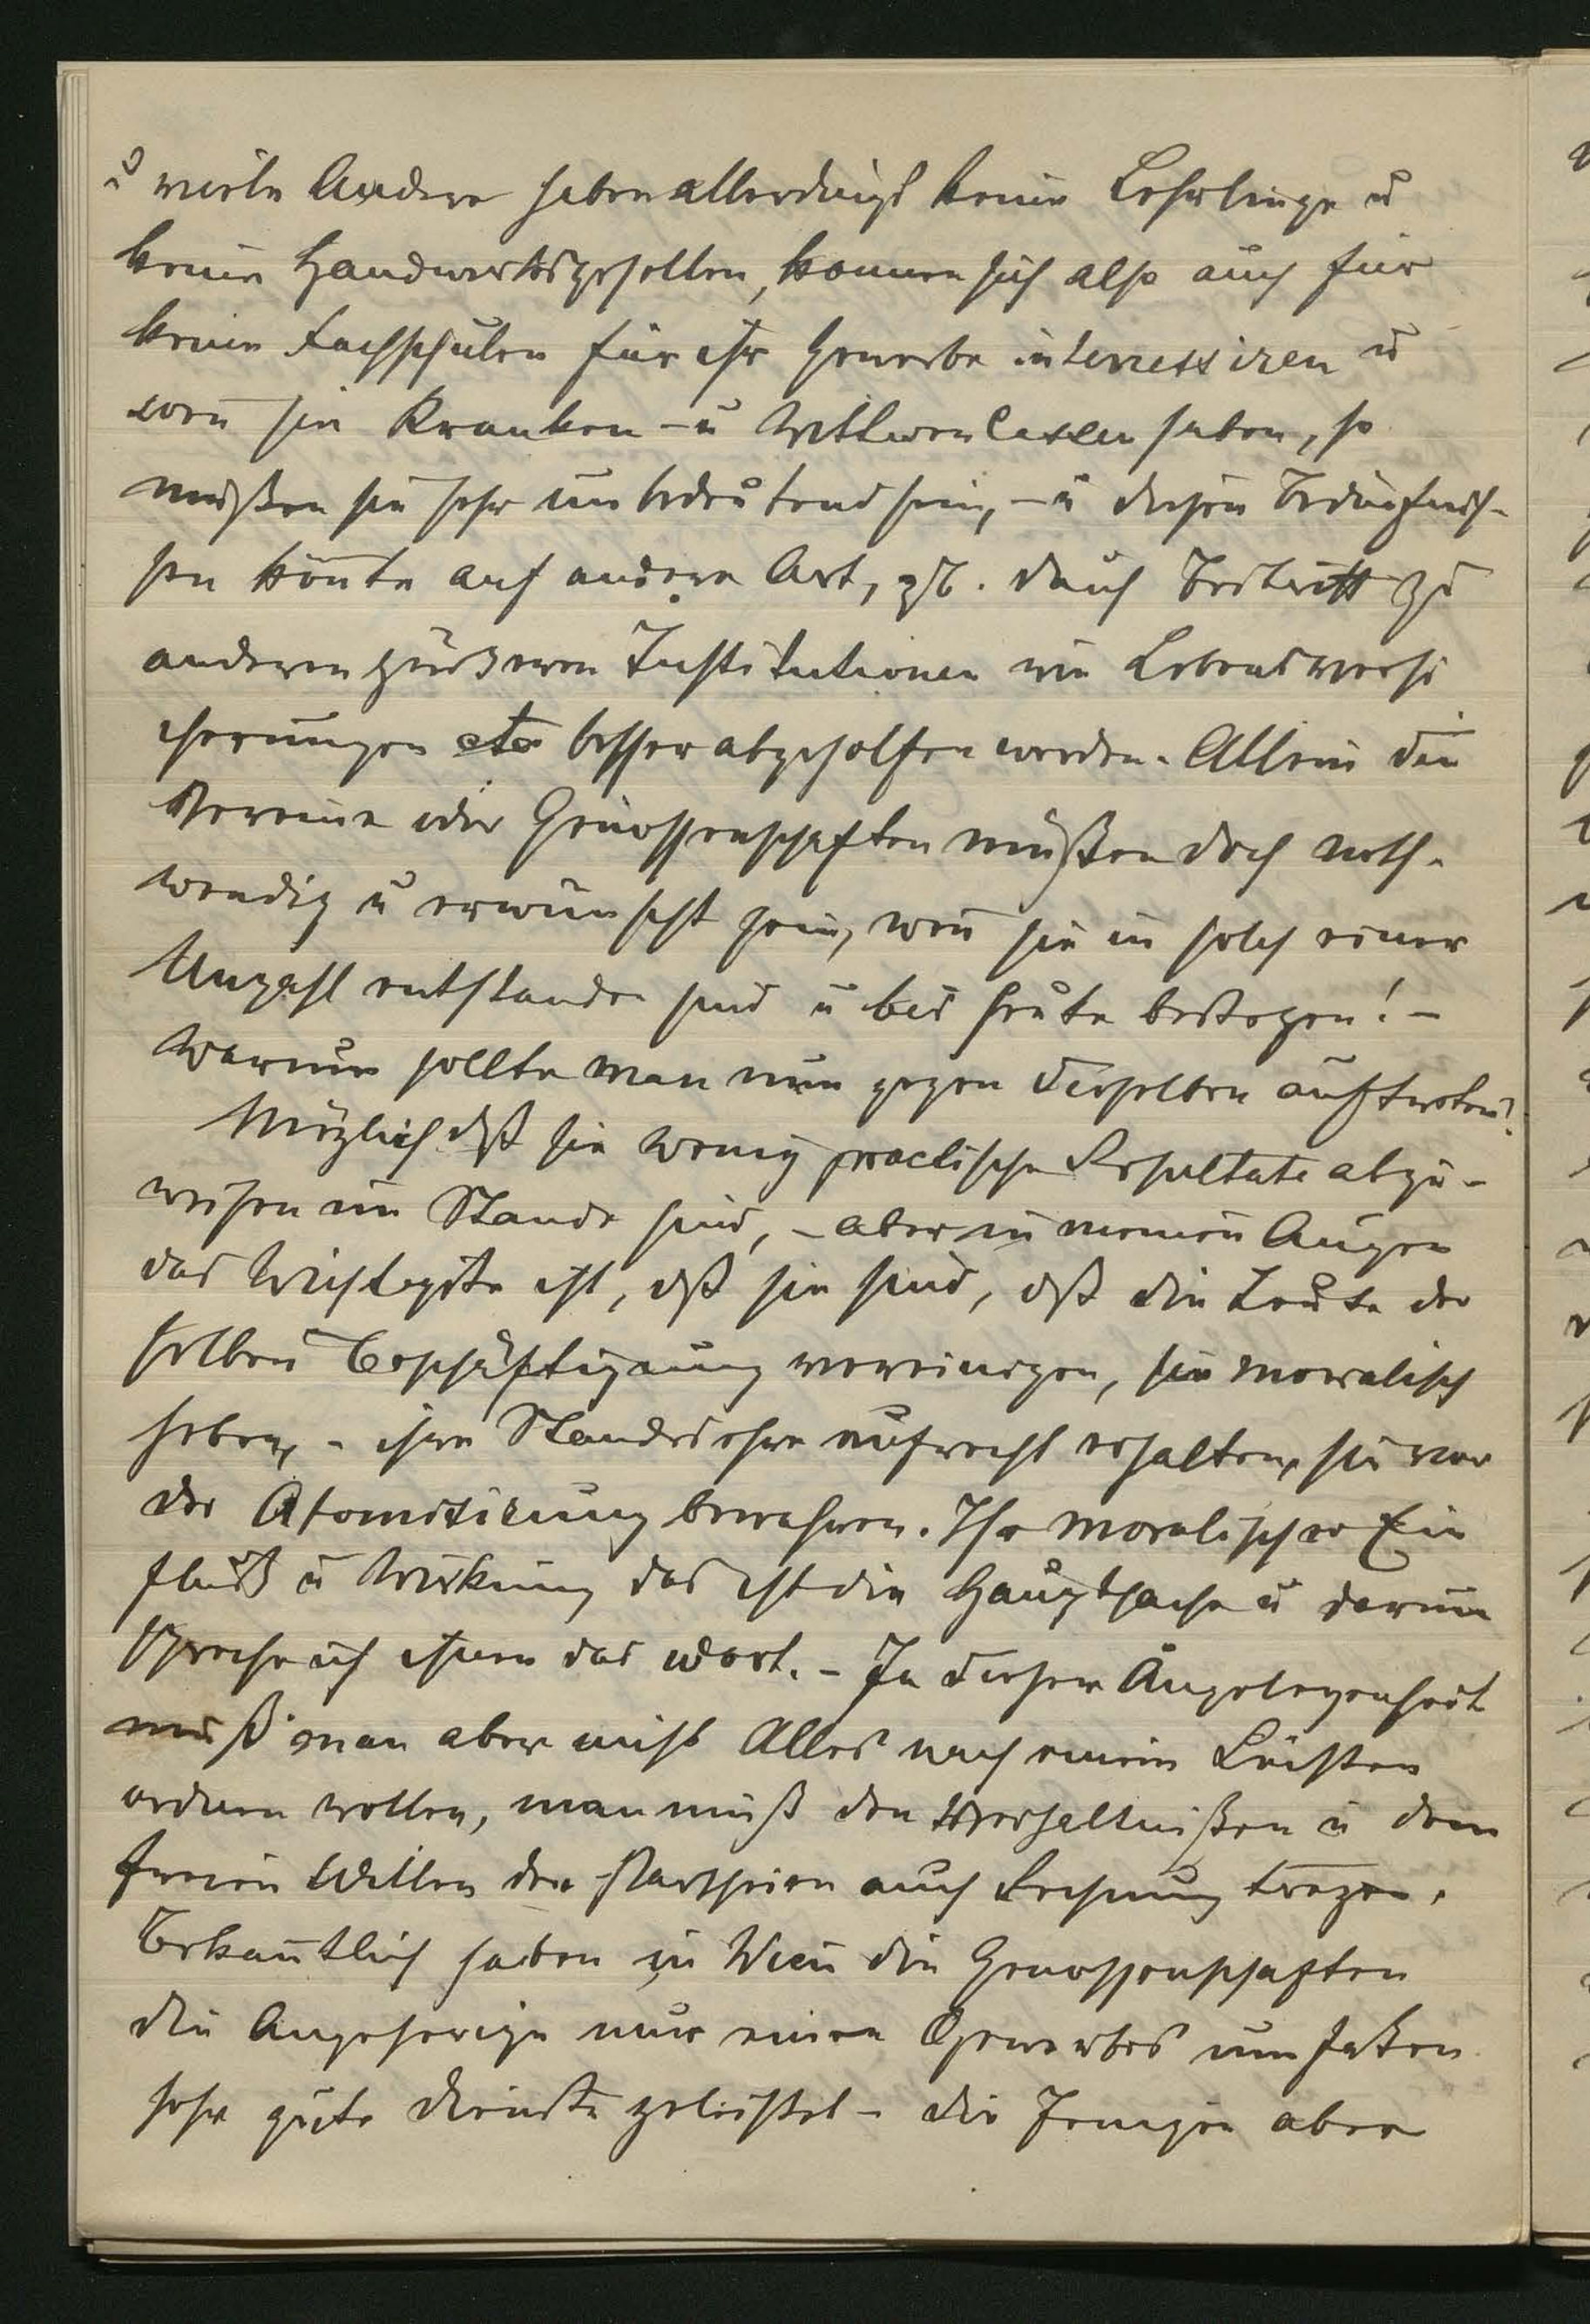 u viele Andere haben allerdings keine Lehrlinge u
keine Handwerksgesellen, können sich also auch für
keine Fachschulen für ihr Gewerbe interressiren u
weñ sie Kranken- u Wittwencassen haben, so
müßen sie sehr unbedeutend sein, - u diesen Bedürfnis-
sen könte auf andere Art, zB. durch Beitritt zu
anderen größeren Institutionen wie Lebensversi
cherungen etc besser abgeholfen werden. Allein die
Vereine oder Genossenschaften müßen doch noth-
wendig u erwünscht sein, weñ sie in solch einer
Unzahl entstanden sind u bis heute bestehen! -
Warum sollte man nun gegen dieselben auftreten?
Möglich dß sie wenig practische Resultate abzu-
weisen im Stande sind, - aber in meinen Augen
das Wichtigste ist, dß sie sind, dß die Leute der
selben Beschäftigung vereinigen, sie moralisch
heben, - ihre Standesehre aufrecht erhalten, sie vor
der Atomisirung bewahren. Ihr moralischer Ein
fluß u Wirkung das ist die Hauptsache u darum
spreche ich ihnen das Wort. - In dieser Angelegenheit
muß man aber nicht Alles nach einem Leisten
ordnen wollen, man muß den Verhältnißen u dem
freien Willen der Partheien auch Rechnung tragen.
Bekañtlich haben in Wien die Genossenschaften
die Angehörige nur eines Gewerbes umfaßen
sehr gute Dienste geleistet - die Jenigen aber